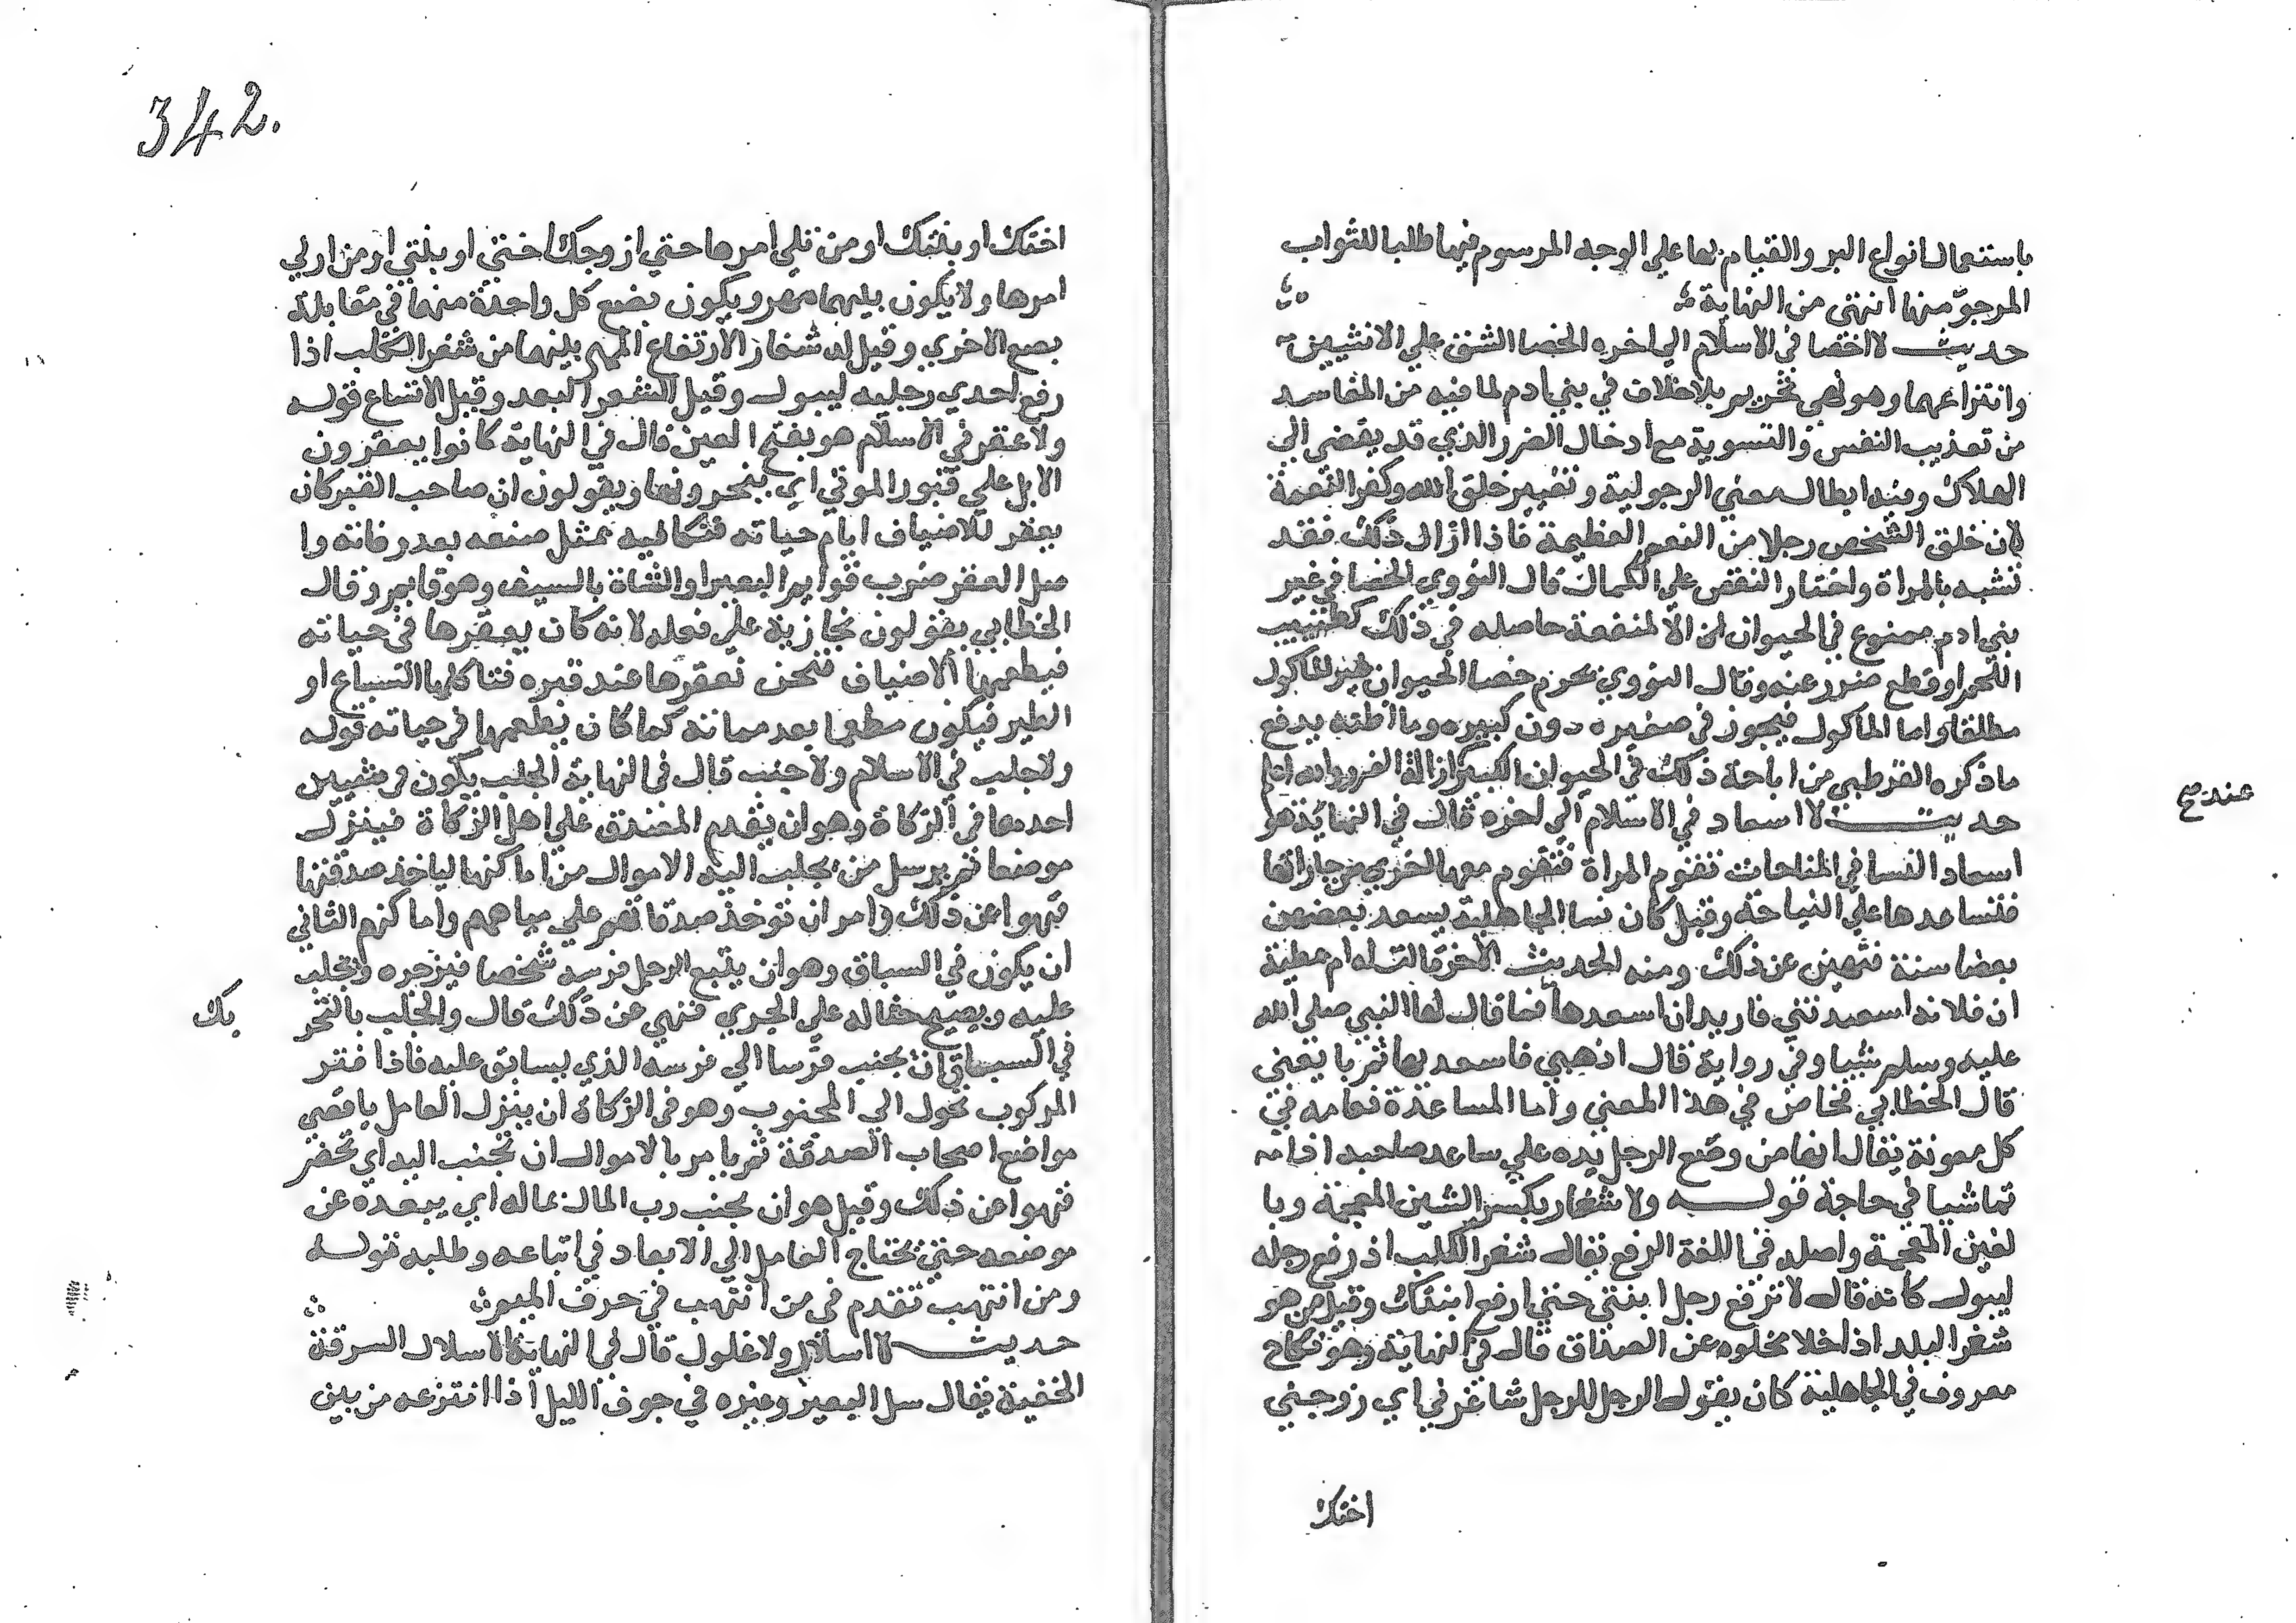 باستعمال انواع البر والقيام بها علي الوجه المرسوم فيها طلبا للثواب
المرجو منها انتهى من النهاية
حديث لا اخصا في الاسلام الي اخره الخصا الشق علي الانثيين
وانتزاعهما وهو نهي تحريم بلا خلاف في بني ادم لما فيه من المفاسد
من تعذيب النفس والتسوية مع ادخال الضرر الذي قد يفضي الي
الهلاك وفيه ابطال معني الرجولية وتغيير خلق الله وكفر النعمة
لان خلق الشخص رجلا من النعم العظيمة فاذا ازال ذلك فقد
تشبه بالمراة واختار النقص علي الكمال قال النووي الخصا في غير
بني ادم ممنوع في الحيوان الا لمنفعة حاصله في ذلك كتطييب
اللحم او قطع ضرر عنه وقال النووي يحرم خصا الحيوان غير الماكول
مطلقا واما الماكول فيجوز في صغيره دون كبيره وما اظنه يدفع
ما ذكره القرطبي من اباحة ذلك في الحيوان الكبير ازالة الضرر والله اعلم
عند صح
حديث لا اسعاد في الاسلام الي اخره قال في النهاية هو
اسعاد النسا في المناحات تقوم المراة فتقوم معها اخري من جاراتها
فتساعدها علي النياحة وقيل كان نسا الجاهلية يسعد بعضهن
بعضا سنة فنهين عن ذلك ومنه الحديث الاخر قالت له ام عطية
ان فلانه اسعدتني فاريد ان اسعدها فما قال لها النبي صلي الله
عليه وسلم شيا وفي رواية قال اذهبي فاسعديها ثم بايعني
قال الخطابي فخاص في هذا المعني واما المساعدة فعامه في
كل معونة يقال انها من وضع الرجل يده علي ساعد صاحبه اذا
تماشيا في حاجة قوله ولا شغار بكسر الشين المعجمة وبا
لغين المعجمة واصله في اللغة الرفع يقال شغر الكلب اذ رفع رجله
ليبول كانه قال لا ترفع رجل ابنتي حتي ارفع ابنتك وقيل من هو
شغر البلد اذا خلا لخلوه عن الصداق قال في النهاية وهو نكاح
معروف في الجاهلية كان يقول الرجل للرجل شاغرني اي زوجني
اختك
342.
اختك او بنتك او من تلي امرها حتي ازوجك اختي او بنتي او من الي
امرها ولا يكون بينهما مهر ويكون بضع كل واحدة منهما في مقابلة
بضع الاخري وقيل له شغار لارتفاع المهر بينهما من شغر الكلب اذا
رفع احدي رجليه ليبول وقيل الشغر البعد وقيل الاتساع قوله
ولا عقر في الاسلام هو بفتح العين قال في النهاية كانوا يعقرون
الابل علي قبور الموتي اي ينحرونها ويقولون ان صاحب القبر كان
يعقر للاضياف ايام حياته فنكافيه بمثل صنعه بعد وفاته وا
صل العقر ضرب قوايم البعير او الشاة بالسيف وهو قايم وقال
الخطابي يقولون نجازيه علي فعله لانه كان يعقرها في حياته
فيطعمها الاضياف فنحن نعقرها عند قبره فتاكلها السباع او
الطير فيكون مطعما بعد مماته كما كان يطعمها في حياته قوله
ولا جلب في الاسلام ولا جنب قال في النهاية الجلب يكون في شيين
احدهما في الزكاة وهو ان يقدم المصدق علي اهل الزكاة فينزل
موضعا ثم يرسل من يجلب اليه الاموال من اماكنها لياخذ صدقتها
فنهوا عن ذلك وامر ان توخذ صدقاتهم علي مياههم واماكنهم الثاني
ان يكون في السباق وهو ان يتبع الرجل فرسه شخصا فيزجره ويجلب
عليه ويصيح حثا له علي الجري فنهي عن ذلك قال والجلب بالتحر
يك
في السباق ان يجنب فرسا الي فرسه الذي يسابق عليه فاذا فتر
المركوب تحول الي المجنوب وهو في الزكاة ان ينزل العامل باقصي
مواضع اصحاب الصدقة ثم يامر بالاموال ان تجنب اليه اي تحضر
فنهوا عن ذلك وقيل هو ان يجنب رب المال بماله اي يبعده عن
موضعه حتي يحتاج العامل الي الابعاد في اتباعه وطلبه قوله
ومن انتهب تقدم في من انتهب في حرف الميم
حديث لا اسلال ولا غلول قال في النهاية الاسلال السرقة
الخفية يقال سل البعير وغيره في جوف الليل اذا انتزعه من بين